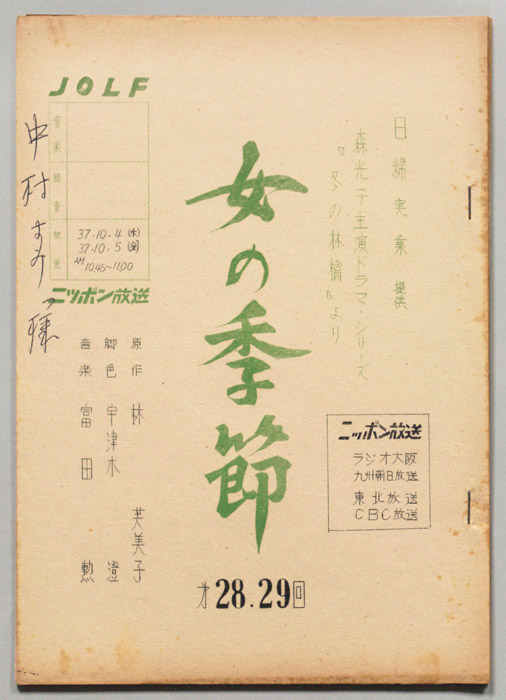 JOLF
音楽
録音
放送
37.10.4(木)
37.10.5(金)
AM 10:45~11:00
ニッポン放送
日綿実業 提供
森光子主演ドラマ・シリーズ
「冬の林檎」より
女の季節
才28.29回
原作 林 芙美子
脚色 宇津木 澄
音楽 富田 勲
ニッポン放送
ラジオ大阪
九州朝日放送
東北放送
CBC放送
中村すみ様